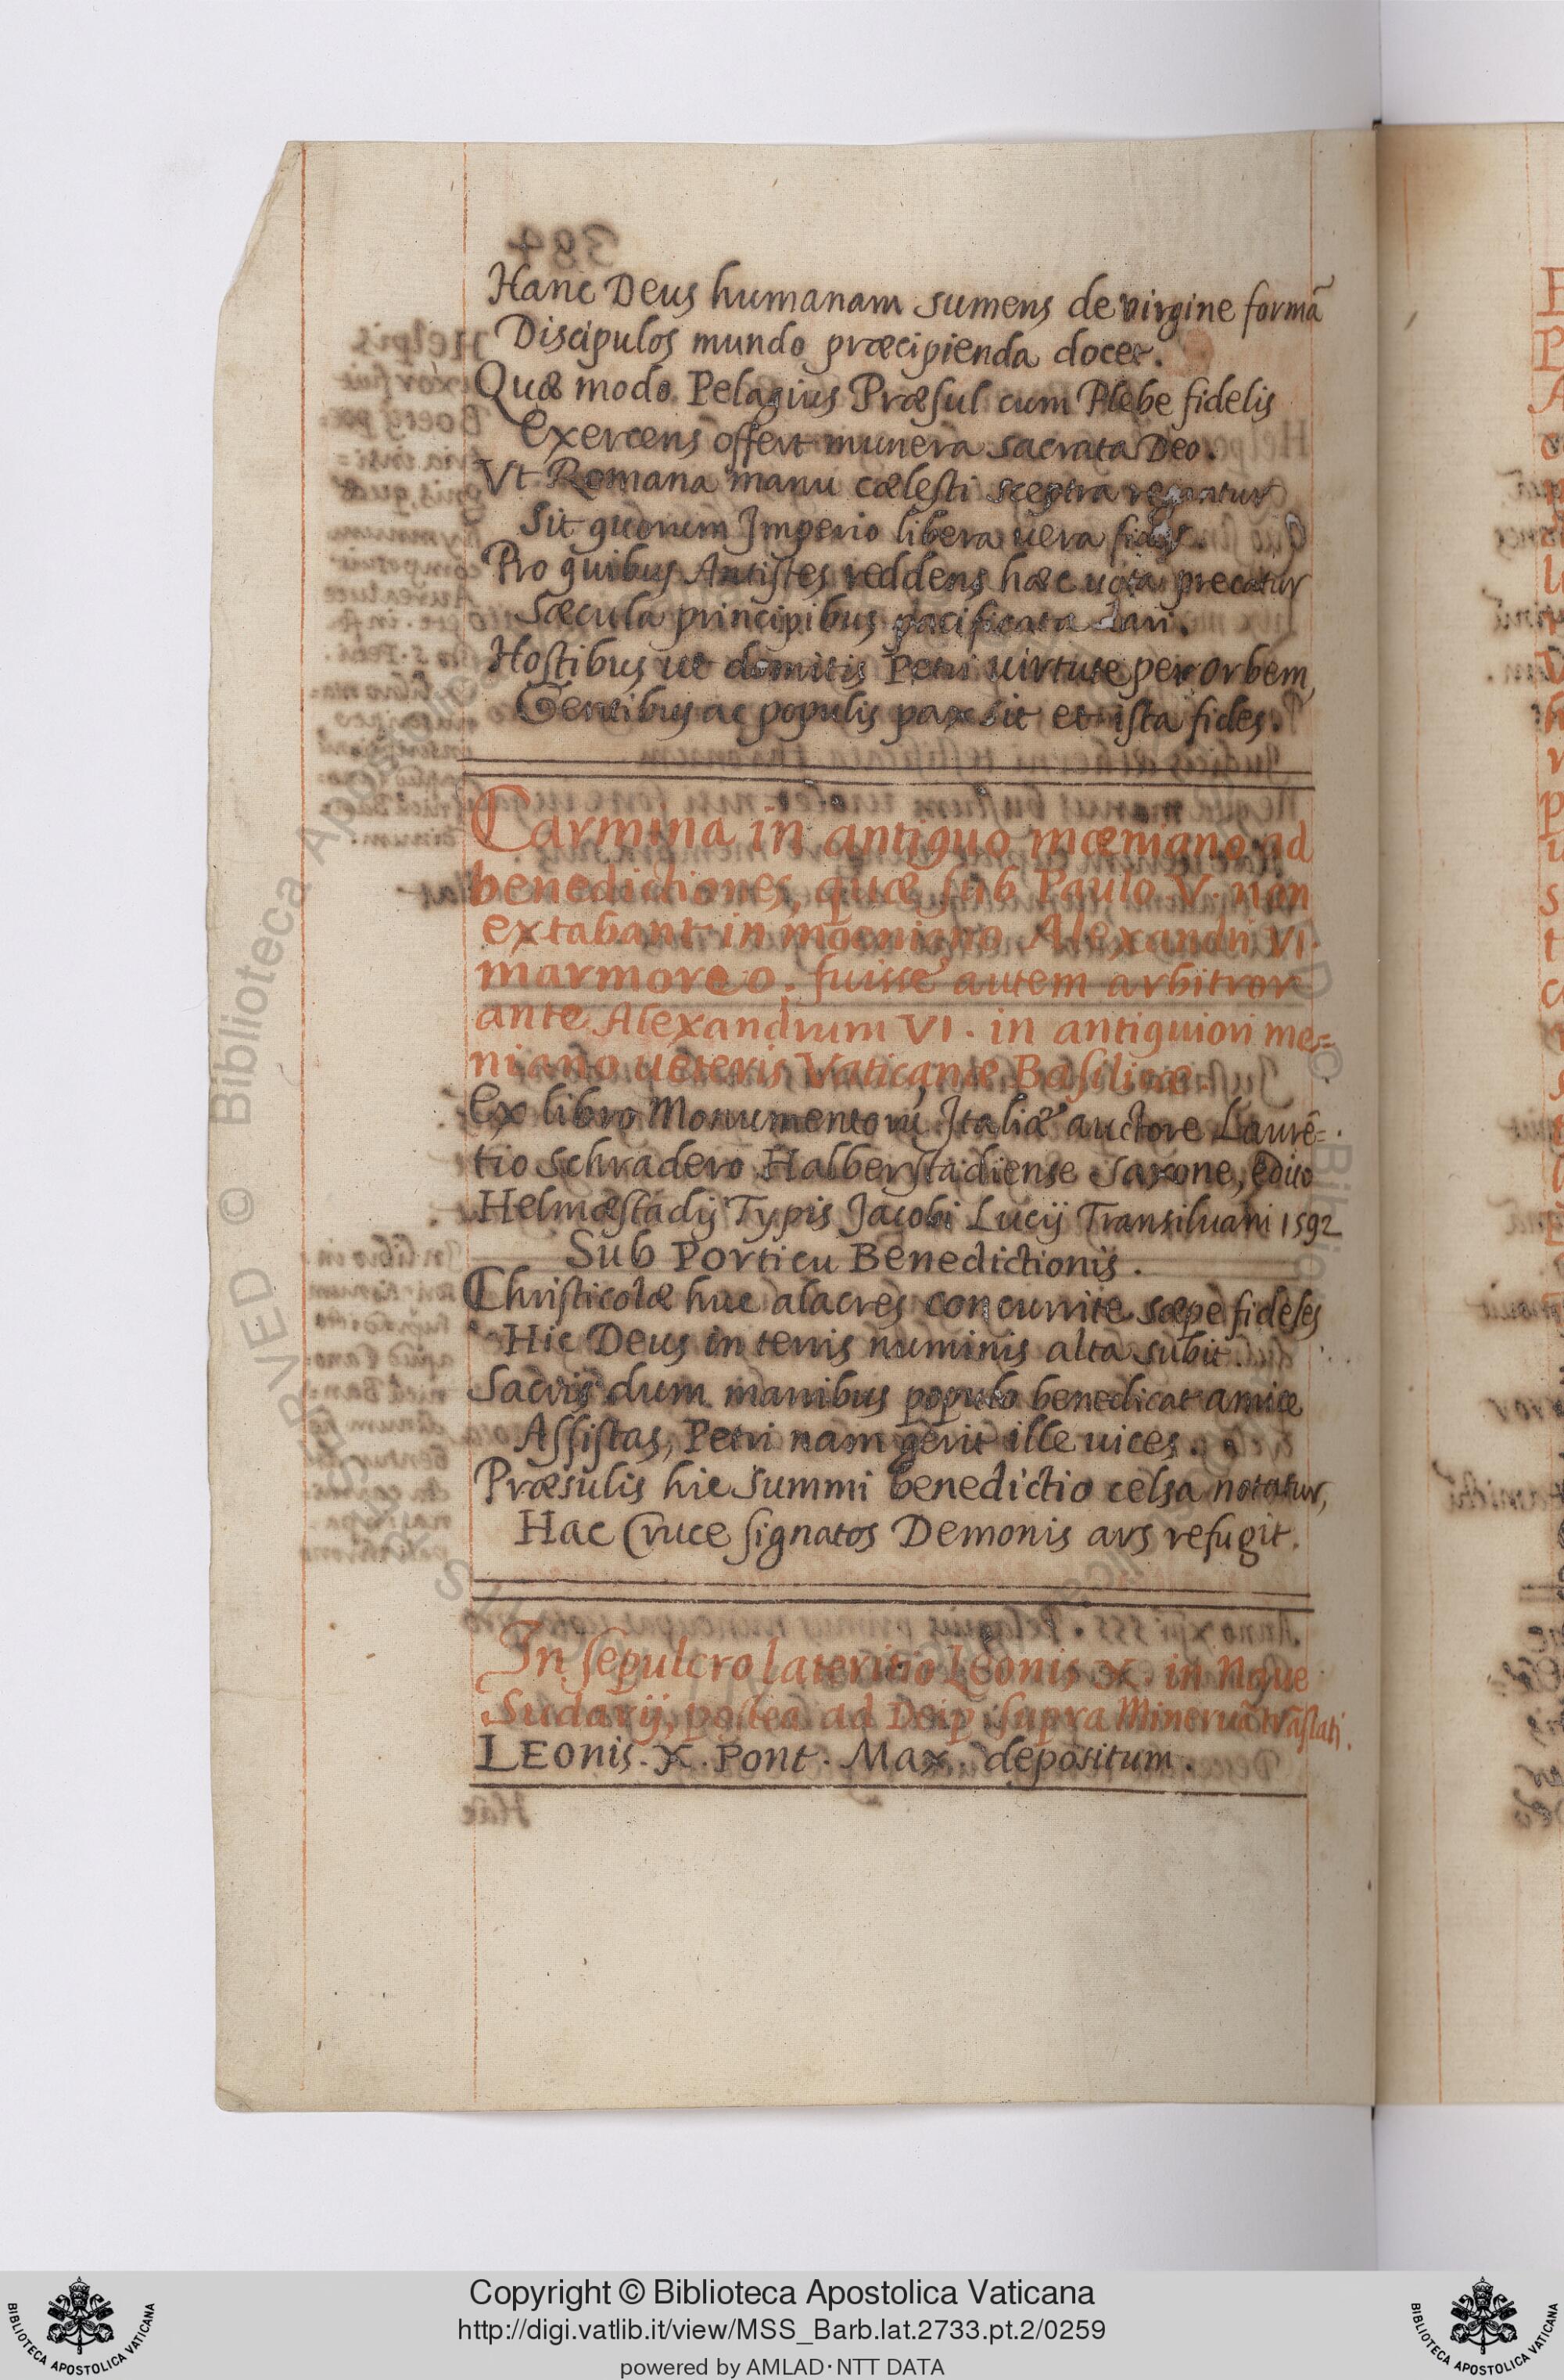 Hanc Deus humanam sumens de virgine formã
Discipulos mundo præcipienda docet.
Quæ modo Pelagius Præsul cum Plebe fidelis
Exercens offert munera sacrata Deo.
Vt Romana manu cælesti sceptra regantur
Sit quorum Imperio libera uera fides.
Pro quibus Antistes reddens hæc uota precatur
Sæcula principibus pacificata dari.
Hostibus ut domitis Petri uirtute per orbem,
Gentibus ac populis pax sit et ista fides.
Carmina in antiquo mæniano ad
benedictiones, quæ sub Paulo V. non
extabant in moeniano Alexandri VI.
marmoreo. fuisse autem arbitror
ante Alexandrum VI. in antiquiori me=
niano ueteris Vaticanæ Basilicæ.
Ex libro Monumentorũ Italiæ auctore Laurẽ=
tio Schradero Halberstadiense Saxone, edito
Helmæstadij Typis Jacobi Lucij Transiluani 1592
Sub Porticu Benedictionis.
Christicolæ huc alacres concurrite sæpe fideles
Hic Deus in terris numinis alta subit.
Sacris dum manibus populo benedicat amice
Assistas, Petri nam gerit ille uices.
Præsulis hic summi benedictio celsa notatur,
Hac Cruce signatos Demonis ars refugit.
In sepulcro lateritio Leonis X. in Naue
Sudarij, postea ad Deip. supra Mineruã trãslati.
LEonis. X. Pont. Max. depositum.
Copyright © Biblioteca Apostolica Vaticana
http://digi.vatlib.it/view/MSS_Barb.lat.2733.pt.2/0259
powered by AMLAD·NTT DATA